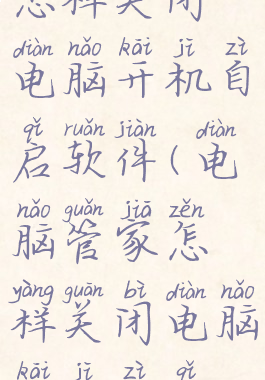 怎样关闭
diàn nǎo kāi jī zì
电脑开机自
qǐ ruǎn jiàn diàn
启软件(电
nǎo guǎn jiā zěn
脑管家怎
yàng guān bì diàn nǎo
样关闭电脑
kāi jī zì qǐ